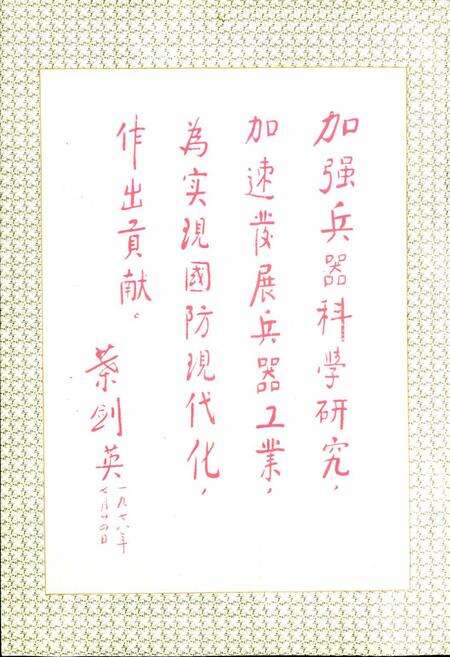 加强兵器科學研究，
加速發展兵器工業，
為实現國防現代化，
作出貢献。
葉剑英
一九七八年
七月十四日